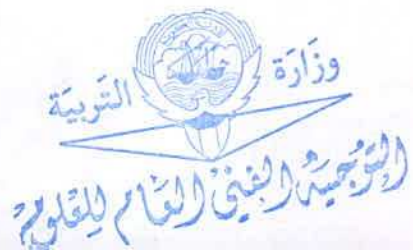 وزَارَة التربيَة
التوجيه الفني العام للعلوم